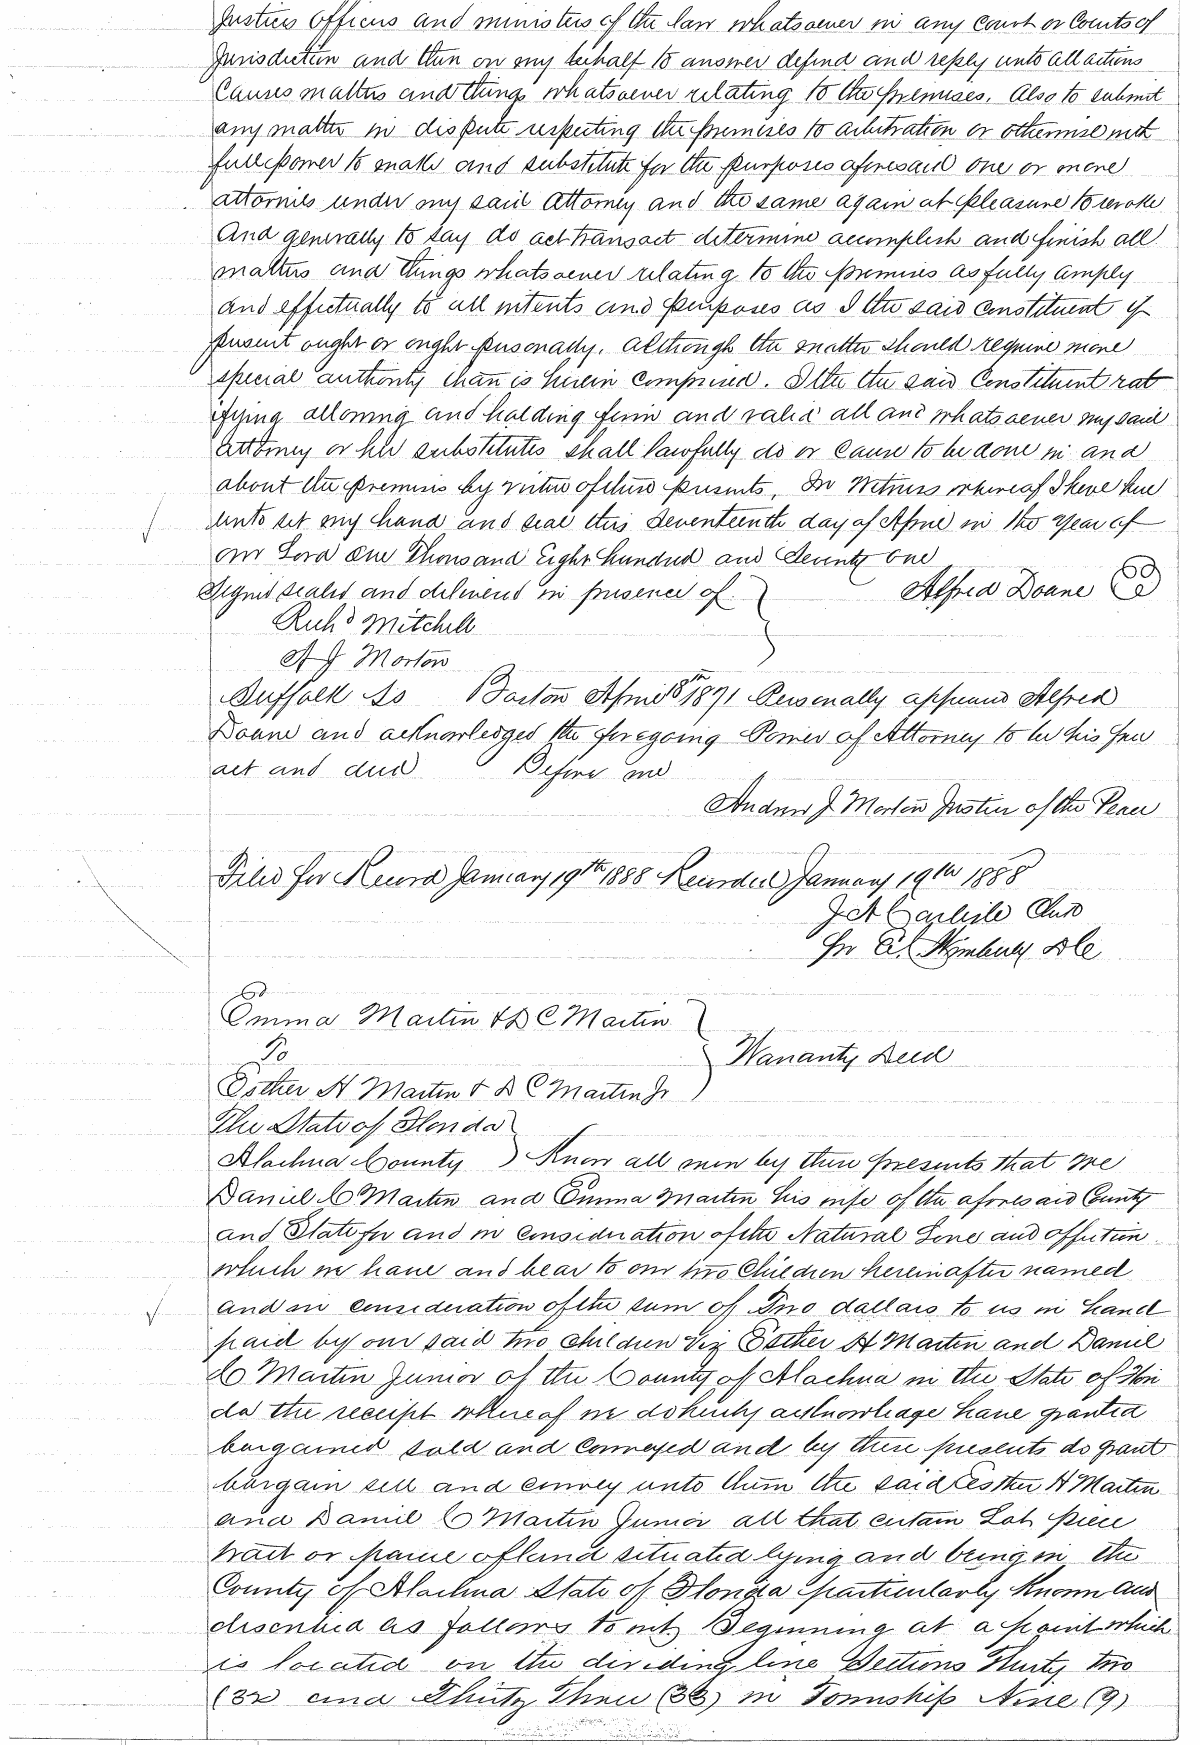 Justices Officers and ministers of the law whatsoever in any court or Courts of
Jurisdiction and then on my behalf to answer defend and reply unto all actions
Causes matters and things whatsoever relating to the premises. Also to submit
any matter in dispute respecting the premises to arbitration or otherwise with
full power to make and substitute for the purposes aforesaid one or more
attornies under my said Attorney and the same again at pleasure to revoke
And generally to say do act transact determine accomplish and finish all
matters and things whatsoever relating to the premises as fully amply
and effectually to all intents and purposes as I the said Constituent if
present ought or might personally, although the matter should require more
special authority than is herein comprised. I the the said Constituent rat
ifying allowing and holding firm and valid all and whatsoever my said
Attorney or her substitutes shall lawfully do or Cause to be done in and
about the premises by virtue of these presents, In Witness whereof I have here
unto set my hand and seal this Seventeenth day of April in the Year of
our Lord One Thousand Eight hundred and Seventy one
Signed sealed and delivered in presence of Alfred Doane
Richd Mitchell
A J Morton
Suffolk Ss Boston April 18th 1871 Personally appeared Alfred
Doane and acknowledged the foregoing Power of Attorney to be his free
act and deed Before me
Andrew J Morton Justice of the Peace
Filed for Record January 19th 1888 Recorded January 19th 1888
J A Carlisle Clerk
Per
Emma Martin & D C Martin
To
Warranty Deed
Esther H Martin & D C Martin Jr
The State of Florida
Alachua County Know all men by these presents that we
Daniel C Martin and Emma Martin his wife of the aforesaid County
and State for and in consideration of the Natural Love and affection
which we have and bear to our two Children hereinafter named
and in consideration of the sum of Two dollars to us in hand
paid by our said two children Viz Esther H Martin and Daniel
C Martin Junior of the County of Alachua in the State of Flori
da the receipt whereof we do hereby acknowledge have granted
bargained sold and conveyed and by these presents do grant
bargain sell and convey unto them the said Esther H Martin
and Daniel C Martin Junior all that certain Lot piece
tract or parcel of land situated lying and being in the
County of Alachua State of Florida particularly known and
described as follows to wit, Beginning at a point which
is located on the dividing line Sections Thirty two
(32) and Thirty Three (33) in Township Nine (9)